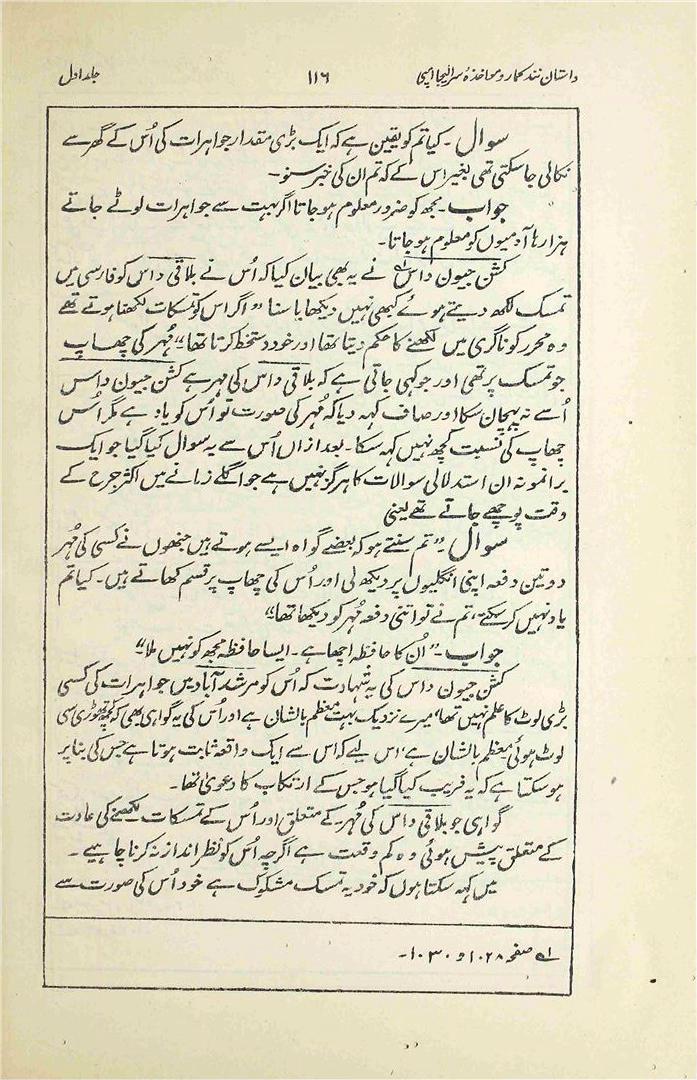 داستان نند کمار و مواخذہ سر الیجا امپی ۱۱۶ جلد اول
سوال ۔ کیا تم کو یقین ہے کہ ایک بڑی مقدار جواہرات کی اُس کے گھر سے
نکالی جا سکتی تھی بغیر اس کے کہ تم ان کی خبر سنو ۔
جواب ۔ مجھ کو ضرور معلوم ہو جاتا اگر بہت سے جواہرات لوٹے جاتے
ہزارہا آدمیوں کو معلوم ہو جاتا۔
کشن جیون داس نے یہ بھی بیان کیا کہ اُس نے بلاقی داس کو فارسی میں
تمسک لکھ دیتے ہوئے کبھی نہیں دیکھا یا سنا ”اگر اس کو تمسکات لکھنا ہوتے تھے
وہ محرر کو ناگری میں لکھنے کا حکم دیتا تھا اور خود دستخط کرتا تھا“ مُہر کی چھاپ
جو تمسک پر تھی اور جو کہی جاتی ہے کہ بلاقی داس کی مہر ہے کشن جیون داس
اُسے نہ پہچان سکا اور صاف کہہ دیا کہ مُہر کی صورت تو اُس کو یاد ہے مگر اُس
چھاپ کی نسبت کچھ نہیں کہہ سکتا ۔ بعد ازاں اُس سے یہ سوال کیا گیا جو ایک
برا نمونہ ان استدلالی سوالات کا ہرگز نہیں ہے جو اگلے زمانے میں اکثر جرح کے
وقت پوچھے جاتے تھے یعنی
سوال ”تم سنتے ہو کہ بعضے گواہ ایسے ہوتے ہیں جنھوں نے کسی کی مُہر
دو تین دفعہ اپنی انگلیوں پر دیکھ لی اور اُس کی چھاپ پر قسم کھاتے ہیں ۔ کیا تم
یاد نہیں کر سکتے، تم نے تو اتنی دفعہ مُہر کو دیکھا تھا“
جواب ۔ ”اُن کا حافظہ اچھا ہے ۔ ایسا حافظہ مجھ کو نہیں ملا“
کشن جیون داس کی یہ شہادت کہ اُس کو مرشد آباد میں جواہرات کی کسی
بڑی لوٹ کا علم نہیں تھا، میرے نزدیک بہت معظم بالشان ہے اور اُس کی یہ گواہی بھی کہ کچھ تھوڑی سی
لوٹ ہوئی معظم بالشان ہے، اس لیے کہ اس سے ایک واقعہ ثابت ہوتا ہے جس کی بنا پر
ہو سکتا ہے کہ یہ فریب کیا گیا ہو جس کے ارتکاب کا دعویٰ تھا ۔
گواہی جو بلاقی داس کی مُہر کے متعلق اور اُس کے تمسکات لکھنے کی عادت
کے متعلق پیش ہوئی وہ کم وقعت ہے اگرچہ اُس کو نظر انداز نہ کرنا چاہیے ۔
میں کہہ سکتا ہوں کہ خود یہ تمسک مشکوک ہے خود اُس کی صورت سے
لہ صفحہ ۱۰۲۸ و ۱۰۳۰ ۔